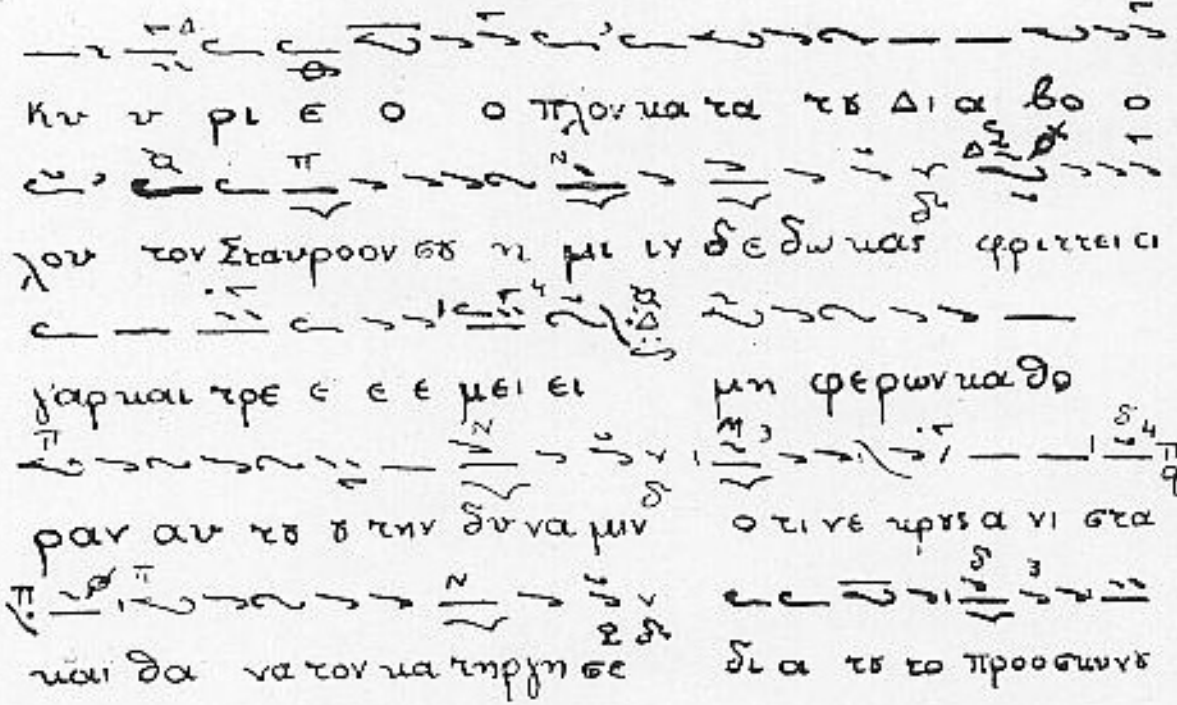 Κυ υ ρι ε ο ο πλον κα τα τȣ Δι α βο ο
λου τον Σταυροον σȣ η μι ιν δε δω κας φριττει ει
γαρ και τρε ε ε ε μει ει μη φερων κα θο
ραν αυ τȣ ȣ την δυ να μιν ο τι νε κρȣς α νι στα
και θα να τον κα τηργη σε δι α τȣ το προσκυνȣ